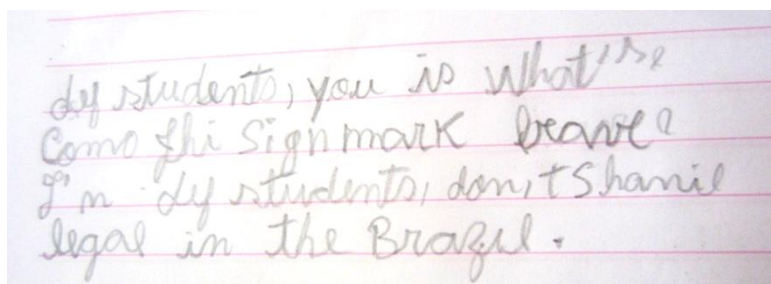 dy students, you is what's
Como thi Sign mark brave?
I'm dy students, don,t Shanie
legal in the Brazil.